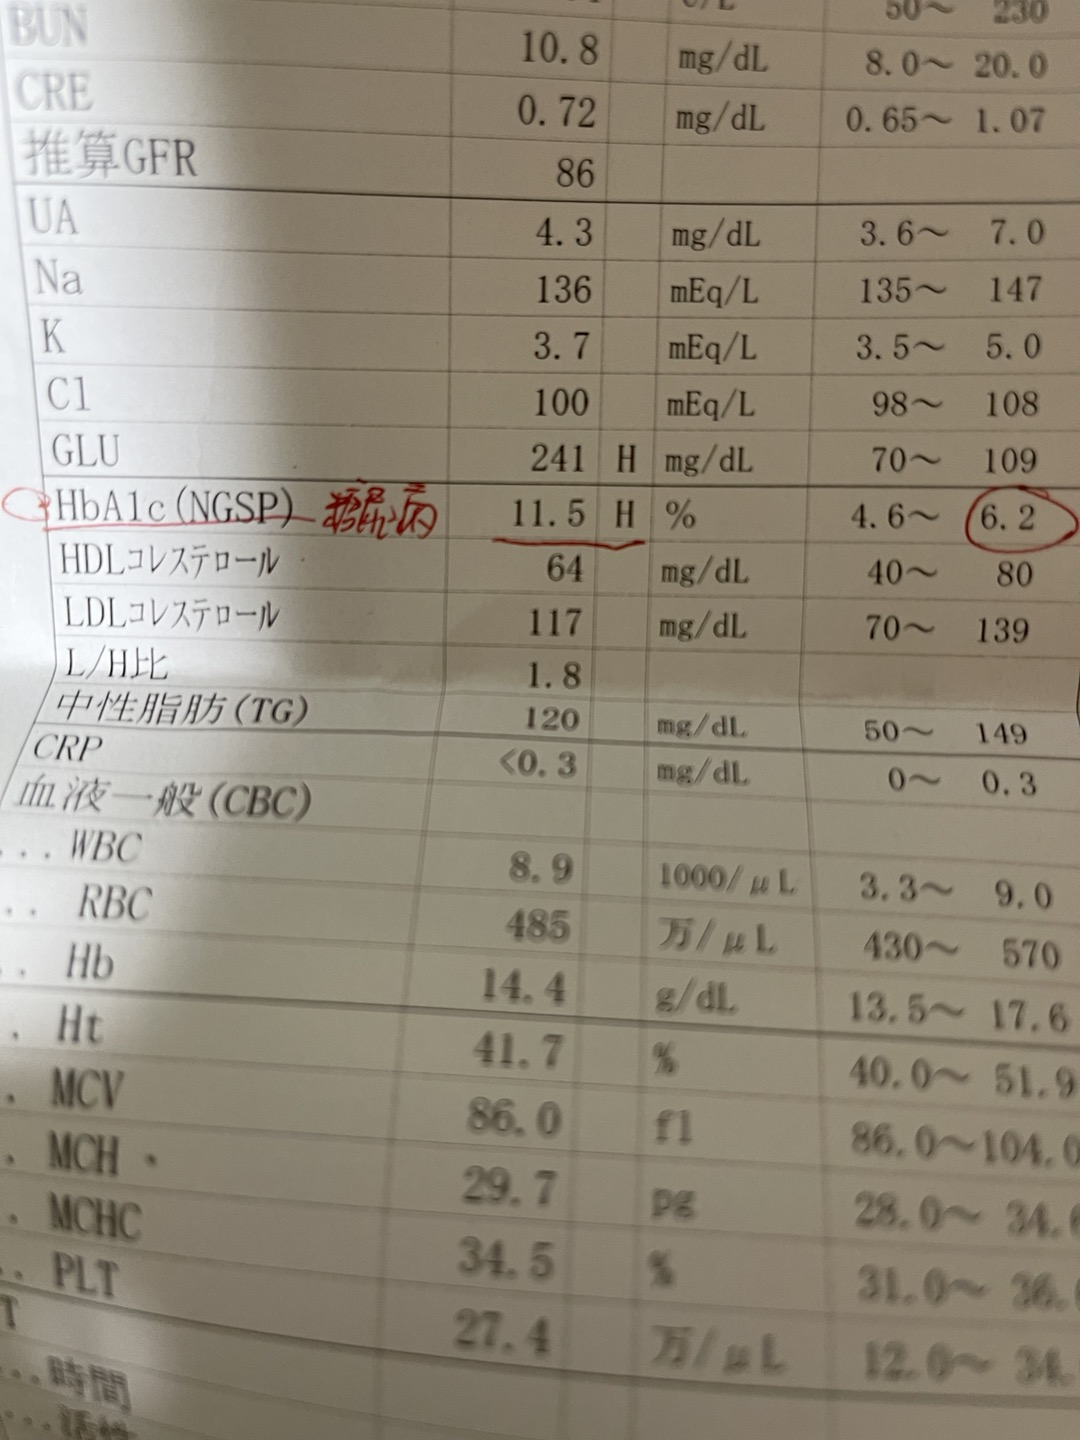 50～ 230
BUN 10.8 mg/dL 8.0～ 20.0
CRE 0.72 mg/dL 0.65～ 1.07
推算GFR 86
UA 4.3 mg/dL 3.6～ 7.0
Na 136 mEq/L 135～ 147
K 3.7 mEq/L 3.5～ 5.0
Cl 100 mEq/L 98～ 108
GLU 241 H mg/dL 70～ 109
HbA1c(NGSP) 糖尿病 11.5 H % 4.6～ 6.2
HDLコレステロール 64 mg/dL 40～ 80
LDLコレステロール 117 mg/dL 70～ 139
L/H比 1.8
中性脂肪(TG) 120 mg/dL 50～ 149
CRP <0.3 mg/dL 0～ 0.3
血液一般(CBC)
...WBC 8.9 1000/μL 3.3～ 9.0
.. RBC 485 万/μL 430～ 570
.. Hb 14.4 g/dL 13.5～ 17.6
. Ht 41.7 % 40.0～ 51.9
. MCV 86.0 fl 86.0～104.0
. MCH 29.7 pg 28.0～ 34.6
. MCHC 34.5 % 31.0～ 36.
.. PLT 27.4 万/μL 12.0～ 34.
T
...時間